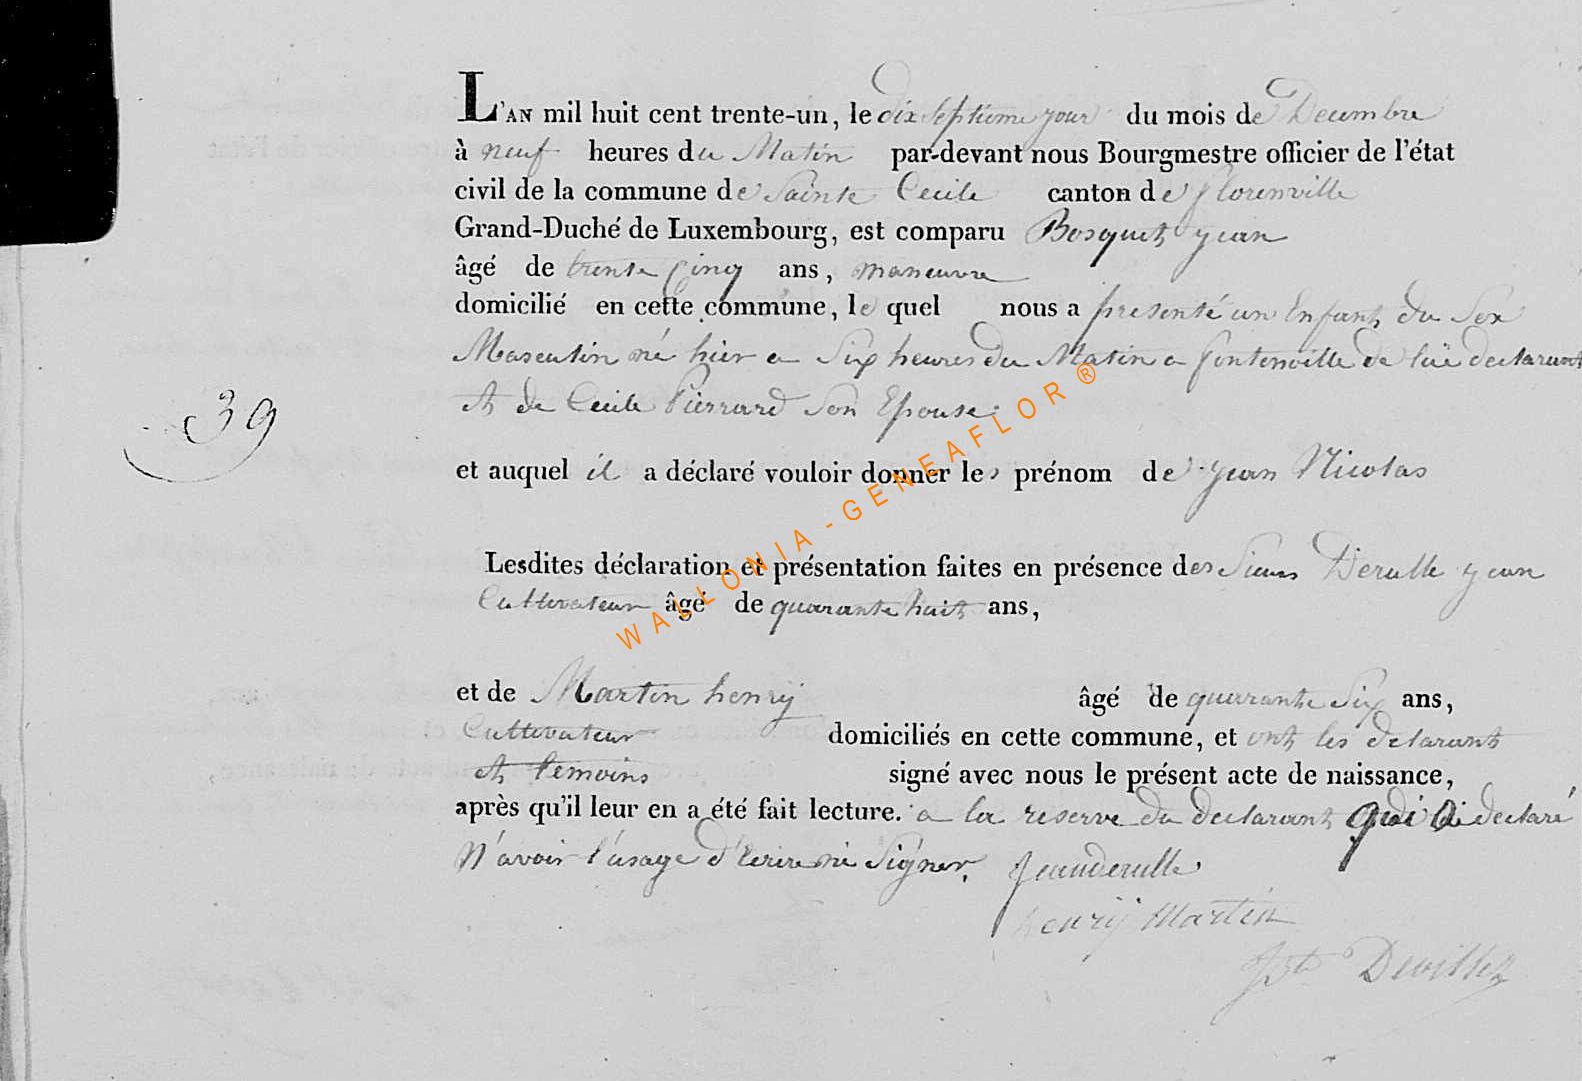 L'AN mil huit cent trente-un, le dix septieme jour du mois de Decembre
à neuf heures du Matin par-devant nous Bourgmestre officier de l'état
civil de la commune de Sainte Cecile canton de florenville
Grand-Duché de Luxembourg, est comparu Bosquet jean
âgé de trente cinq ans, maneuvre
domicilié en cette commune, le quel nous a presenté un Enfant du Sex
Masculin né hier a Six heures du Matin a fontenoille de lui declarant
et de Cecile Pierrard Son Epouse
39
et auquel il a déclaré vouloir donner les prénom de jean Nicolas
Lesdites déclaration et présentation faites en présence des Sieurs Derulle jean
Cultivateur âgé de quarante huit ans,
et de Martin henrij âgé de quarante Six ans,
Cultivateur domiciliés en cette commune, et ont les declarants
et temoins signé avec nous le présent acte de naissance,
après qu'il leur en a été fait lecture. a la reserve du declarant qui a declaré
N'avoir l'usage d'Ecrire ni Signer. Jeanderulle
henrij Martin
Devillez
WALLONIA-GENEAFLOR®